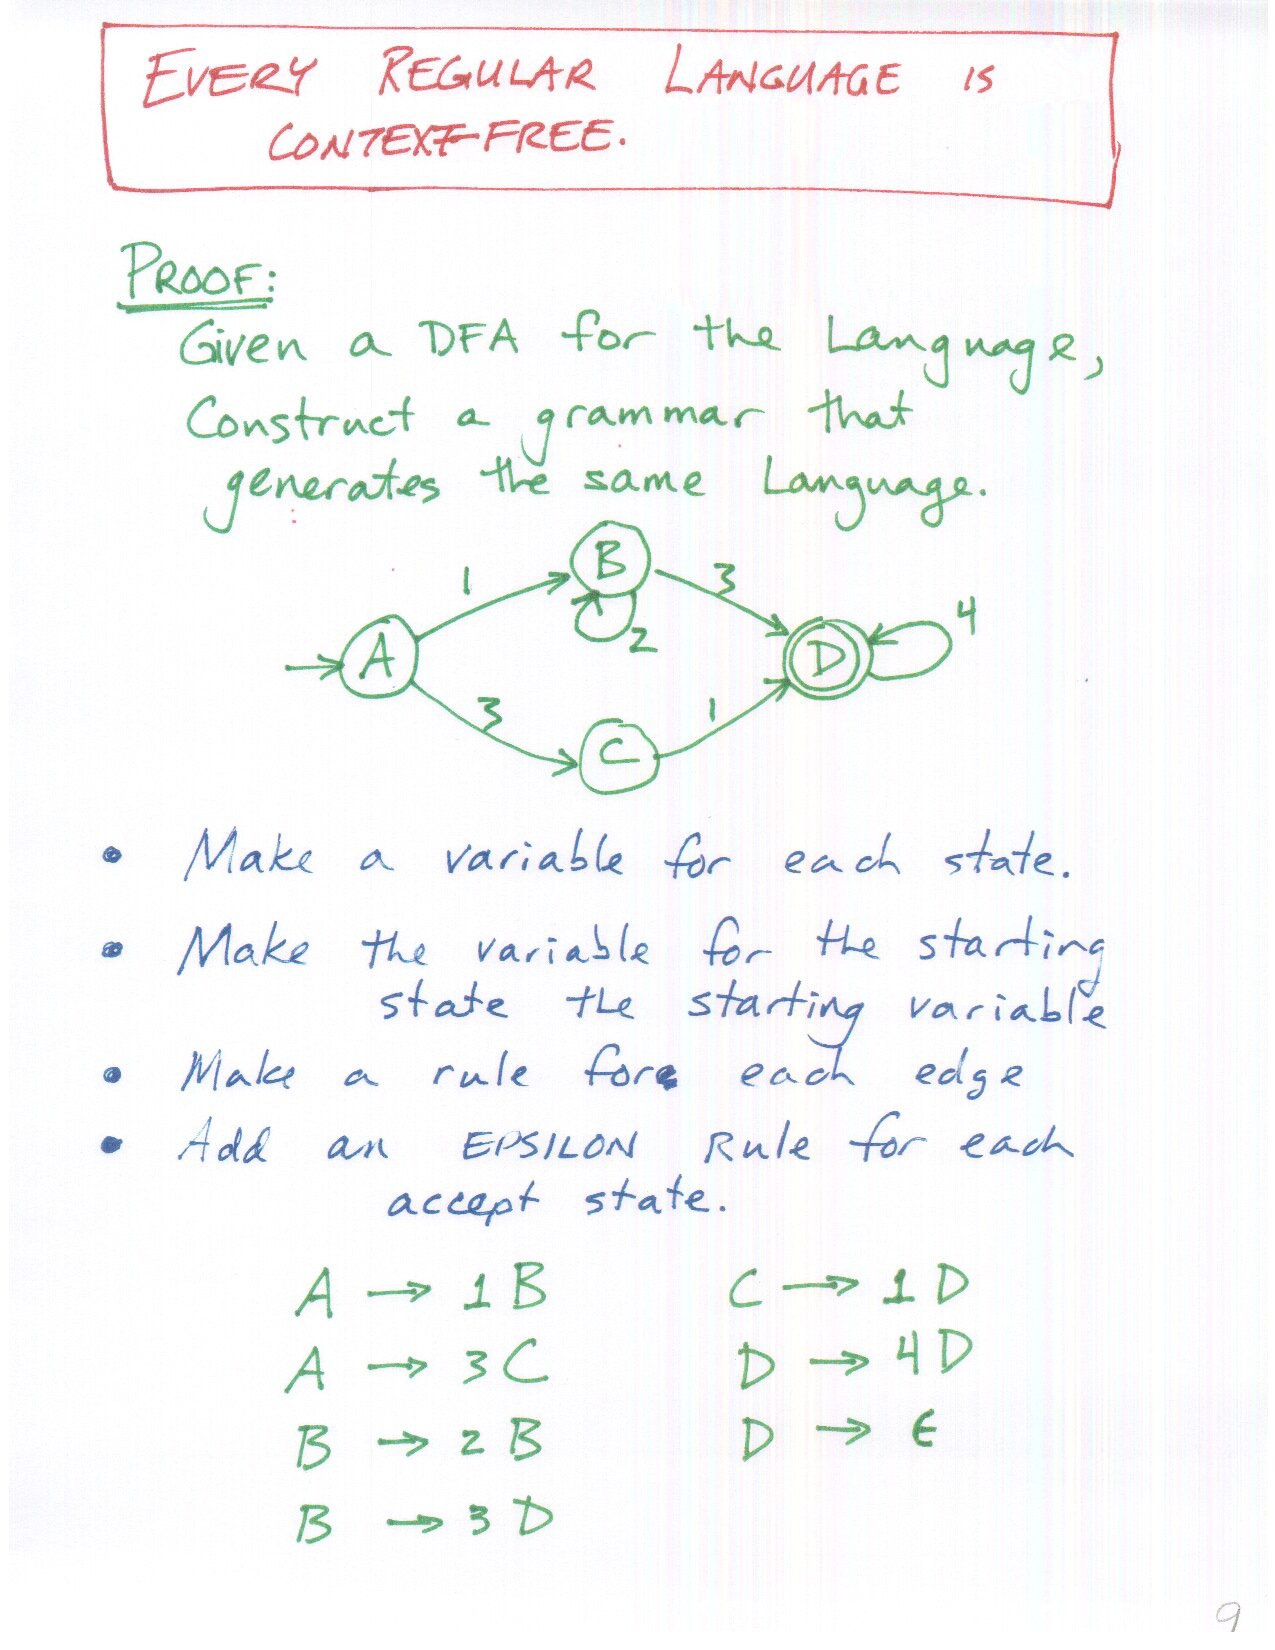 EVERY REGULAR LANGUAGE IS
CONTEXT-FREE.
PROOF:
Given a DFA for the Language,
Construct a grammar that
generates the same Language.
1
B
3
2
A
D
4
3
C
1
• Make a variable for each state.
• Make the variable for the starting
state the starting variable
• Make a rule for each edge
• Add an EPSILON Rule for each
accept state.
A → 1 B
C → 1 D
A → 3 C
D → 4 D
B → 2 B
D → ϵ
B → 3 D
9